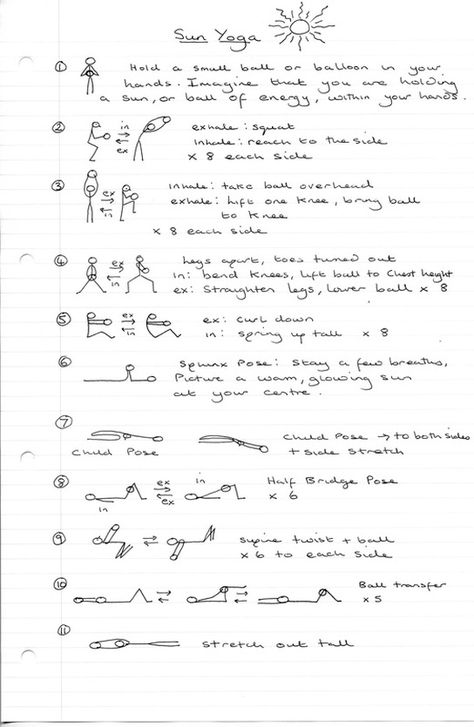 Sun Yoga
① Hold a small ball or balloon in your
hands. Imagine that you are holding
a sun, or ball of energy, within your hands.
② in exhale: squat
ex inhale: reach to the side
x 8 each side
③ inhale: take ball overhead
ex exhale: lift one knee, bring ball
in to knee
x 8 each side
④ Legs apart, toes turned out
ex in: bend knees, lift ball to chest height
in ex: straighten legs, lower ball x 8
⑤ ex ex: curl down
in in: spring up tall x 8
⑥ Sphinx Pose: Stay a few breaths,
Picture a warm, glowing sun
at your centre.
⑦
Child Pose → to both sides
Child Pose + side stretch
⑧ ex in Half Bridge Pose
in ex x 6
⑨ supine twist + ball
x 6 to each side
⑩ Ball transfer
x 5
⑪ stretch out tall